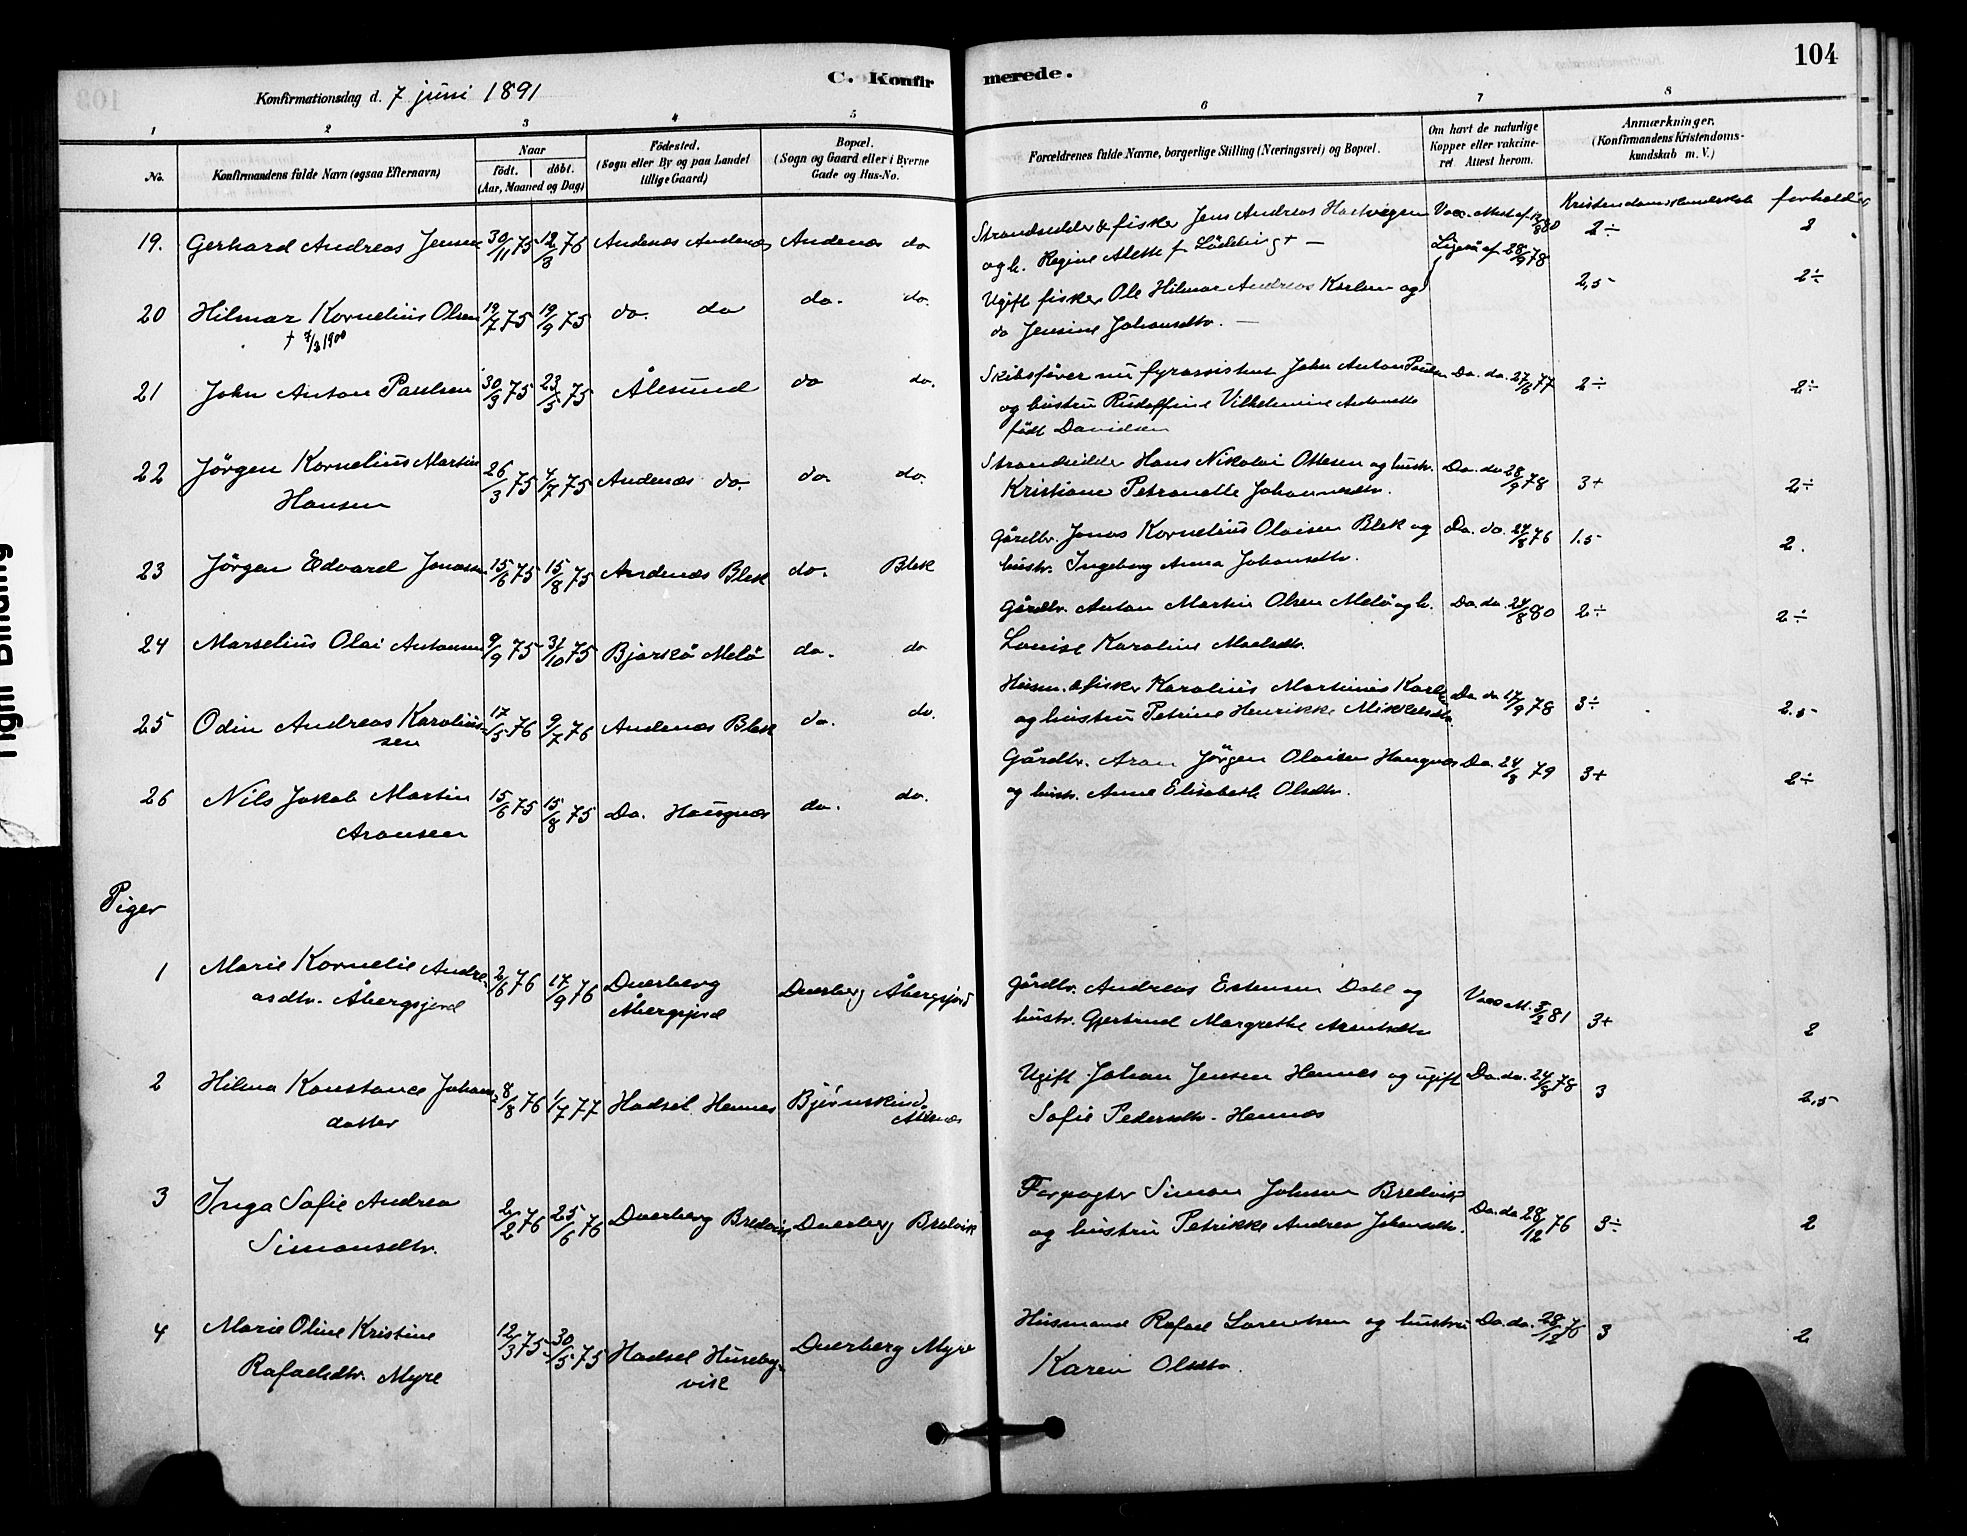 104
C. Konfir
merede.
Konfirmationsdag d. 7 juni 1891
1 2 3 4 5 6 7 8
No.
Konfirmandens fulde Navn (ogsaa Efternavn)
Naar
født. døbt.
(Aar, Maaned og Dag)
Fødested.
(Sogn eller By og paa Landet
tillige Gaard)
Bopæl.
(Sogn og Gaard eller i Byerne
Gade og Hus-No.
Forældrenes fulde Navne, borgerlige Stilling (Næringsvei) og Bopæl.
Om havt de naturlige
Kopper eller vakcine-
ret Attest herom.
Anmærkninger.
(Konfirmandens Kristendoms-
kundskab m. V.)
Kristendomskundskab forholder
19. Gerhard Andreas Jensen 30/11 75 12/3 76 Andenæs Andenæs Andenæs do
Strandsidder & fisker Jens Andreas Hartvigsen
og h. Regine Alette f. Lödding + —
Vacc. Attest af 80 2÷ 2
20 Hilmar Kornelius Olsen 19/7 75 19/9 75 do. do do. do.
† 1900
Ugift fisker Ole Hilmar Andreas Karlsen og
do Jensine Johansdtr. —
Ligeså af 28/9 78 2,5 2÷
21 John Anton Paulsen 30/3 75 23/5 75 Ålesund do do.
Skibsfører nu fyrassistent John Anton Paulsen
og hustru Rudolfine Vilhelmine Antonette
født Davidsen
Do. do. 27/6 77 2÷ 2÷
22 Jörgen Kornelius Martin
Hansen
26/3 75 4/7 75 Andenæs do. do. do.
Strandsidder Hans Nikolai Ottesen og hustr.
Kristiane Petronelle Johannesdtr.
Do. do 28/9 78 3+ 2÷
23 Jörgen Edvard Jonassen 15/6 75 15/8 75 Andenæs Blek do. Blek
Gårdbr. Jonas Kornelius Olaisen Blek og
hustr. Ingeborg Anna Johansdtr.
Do. do. 24/8 76 1.5 2.
24 Marselius Olai Antonsen 9/9 75 31/10 75 Bjarkö Melö do. do
Gårdbr. Anton Martin Olsen Melö og h.
Louise Karoline
Do. do. 24/8 80 2÷ 2÷
25 Odin Andreas Karolius-
sen
17/5 76 9/7 76 Andenæs Blek do. do.
Husm. & fisker Karolius Martinus Karls.
og hustru Petrine Henrikke Mikkelsdtr.
Do. do 17/9 78 3÷ 2.5
26 Nils Jakob Martin
Aronsen
15/6 75 15/8 75 Do. Haugnæs do. do.
Gårdbr. Aron Jörgen Olaisen Haugnæs
og hustr. Anne Elisabeth Olsdtr.
Do. 24/8 79 3+ 2÷
Piger
1 Marie Kornelie Andre-
asdtr. Åbergsjord
2/6 76 17/9 76 Dverberg
Åbergsjord
Dverberg Åbergsjord
Gårdbr. Andreas Estensen Dahl og
hustr. Gjertrud Margrethe Arentsdtr
Vacc. At. 5/2 81 3+ 2
2 Hilma Konstance Johans-
datter
8/8 76 1/7 77 Hadsel Hennes Bjørnskind
Åknæs
Ugift Johan Jensen Hennes og ugift
Sofie Pedersdtr. Hennes
Do. do. 24/8 78 3 2,5
3 Inga Sofie Andrea
Simonsdtr.
2/2 76 25/6 76 Dverberg Bredvik Dverberg Bredvik
Forpagter Simon Johnsen Bredvik
og hustru Petrikke Andrea Johansdtr.
Do. do 28/12 76 3÷ 2
4 Marie Oline Kristine
Rafaelsdtr. Myre
12/3 75 30/5 75 Hadsel Huseby-
vik
Dverberg Myre
Husmand Rafael Lorentsen og hustru
Karen Olsdtr.
Do. do. 28/12 76 3 2